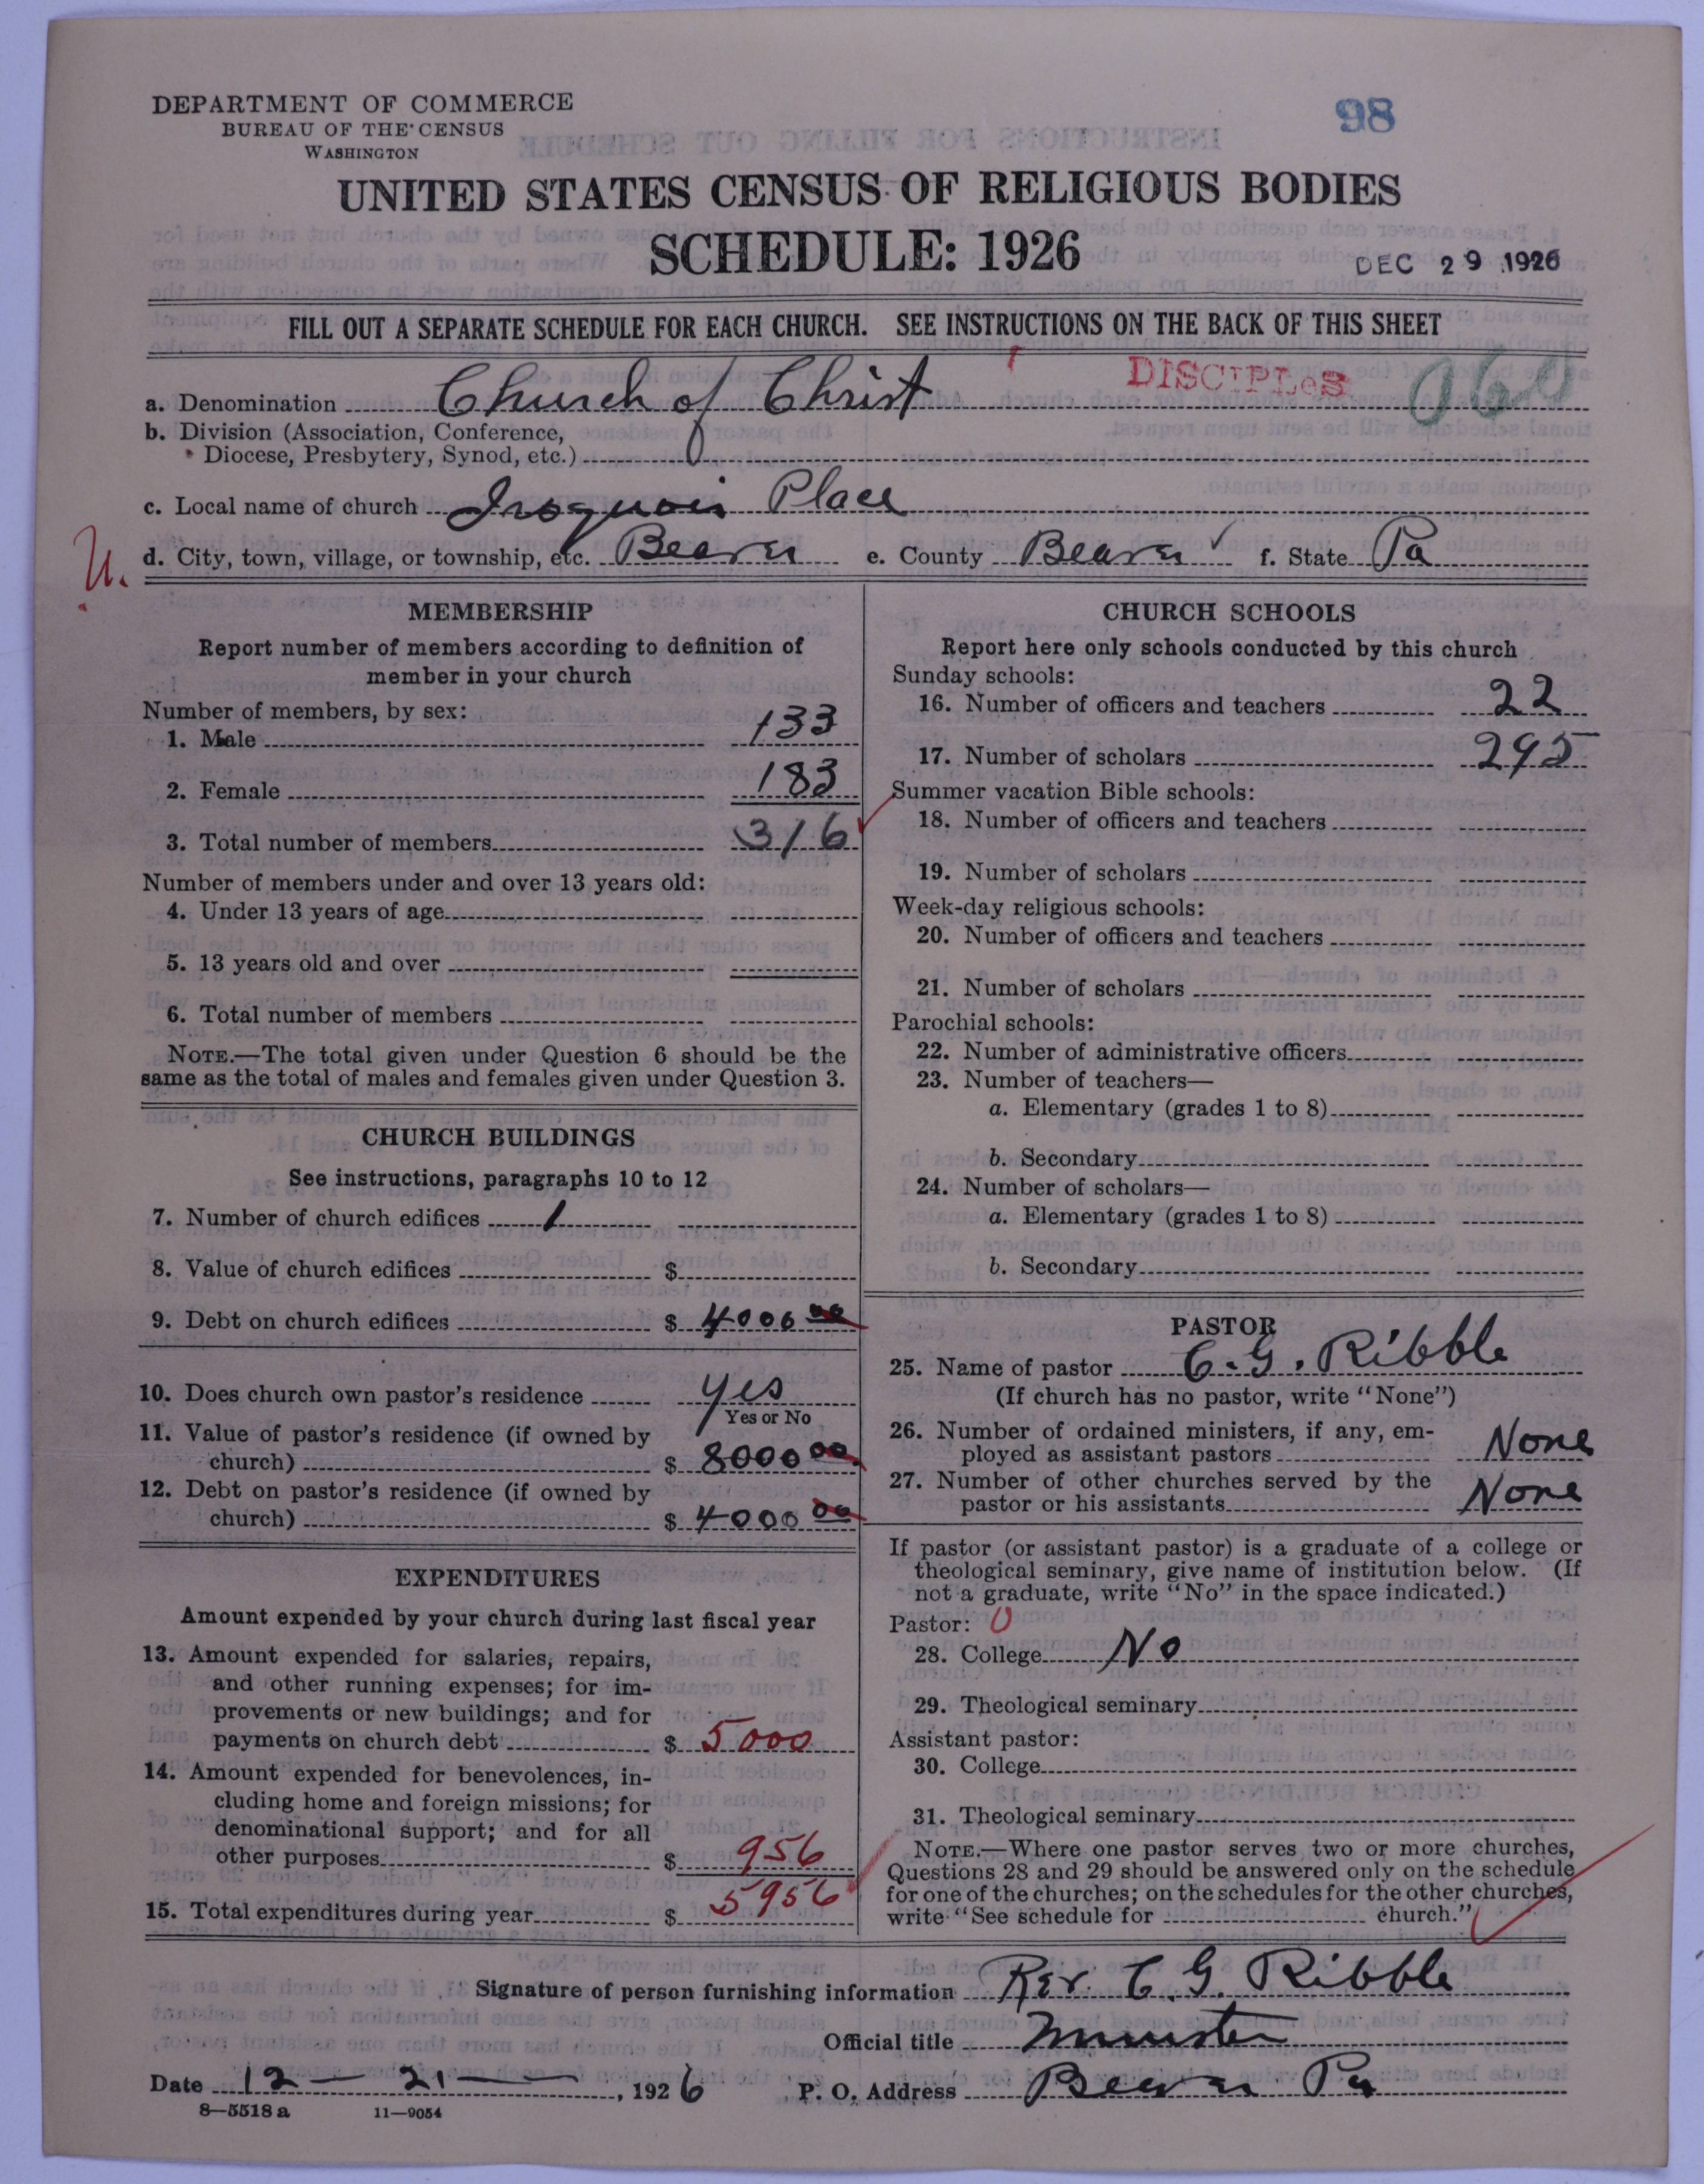 DEPARTMENT OF COMMERCE
BUREAU OF THE CENSUS
WASHINGTON
98
UNITED STATES CENSUS OF RELIGIOUS BODIES
SCHEDULE: 1926
DEC 29 1926
FILL OUT A SEPARATE SCHEDULE FOR EACH CHURCH. SEE INSTRUCTIONS ON THE BACK OF THIS SHEET
DISCIPLES
a. Denomination Church of Christ
b. Division (Association, Conference,
Diocese, Presbytery, Synod, etc.)
c. Local name of church Iroquois Place
U.
d. City, town, village, or township, etc. Beaver e. County Beaver f. State Pa
MEMBERSHIP
Report number of members according to definition of
member in your church
Number of members, by sex:
1. Male 133
2. Female 183
3. Total number of members 316
Number of members under and over 13 years old:
4. Under 13 years of age
5. 13 years old and over
6. Total number of members
NOTE.—The total given under Question 6 should be the
same as the total of males and females given under Question 3.
CHURCH BUILDINGS
See instructions, paragraphs 10 to 12
7. Number of church edifices 1
8. Value of church edifices $
9. Debt on church edifices $ 4000 00
10. Does church own pastor's residence yes
Yes or No
11. Value of pastor's residence (if owned by
church) $ 8000 00
12. Debt on pastor's residence (if owned by
church) $ 4000 00
EXPENDITURES
Amount expended by your church during last fiscal year
13. Amount expended for salaries, repairs,
and other running expenses; for im-
provements or new buildings; and for
payments on church debt $ 5000
14. Amount expended for benevolences, in-
cluding home and foreign missions; for
denominational support; and for all
other purposes $ 956
15. Total expenditures during year $ 5956
CHURCH SCHOOLS
Report here only schools conducted by this church
Sunday schools:
16. Number of officers and teachers 22
17. Number of scholars 295
Summer vacation Bible schools:
18. Number of officers and teachers
19. Number of scholars
Week-day religious schools:
20. Number of officers and teachers
21. Number of scholars
Parochial schools:
22. Number of administrative officers
23. Number of teachers—
a. Elementary (grades 1 to 8)
b. Secondary
24. Number of scholars—
a. Elementary (grades 1 to 8)
b. Secondary
PASTOR
25. Name of pastor C. G. Ribble
(If church has no pastor, write "None")
26. Number of ordained ministers, if any, em-
ployed as assistant pastors None
27. Number of other churches served by the
pastor or his assistants None
If pastor (or assistant pastor) is a graduate of a college or
theological seminary, give name of institution below. (If
not a graduate, write "No" in the space indicated.)
Pastor: 0
28. College No
29. Theological seminary
Assistant pastor:
30. College
31. Theological seminary
NOTE.—Where one pastor serves two or more churches,
Questions 28 and 29 should be answered only on the schedule
for one of the churches; on the schedules for the other churches,
write "See schedule for church."
Signature of person furnishing information Rev. C. G. Ribble
Official title Minister
Date 12 — 21 —, 1926 P. O. Address Beaver Pa
8—5518 a 11—9054